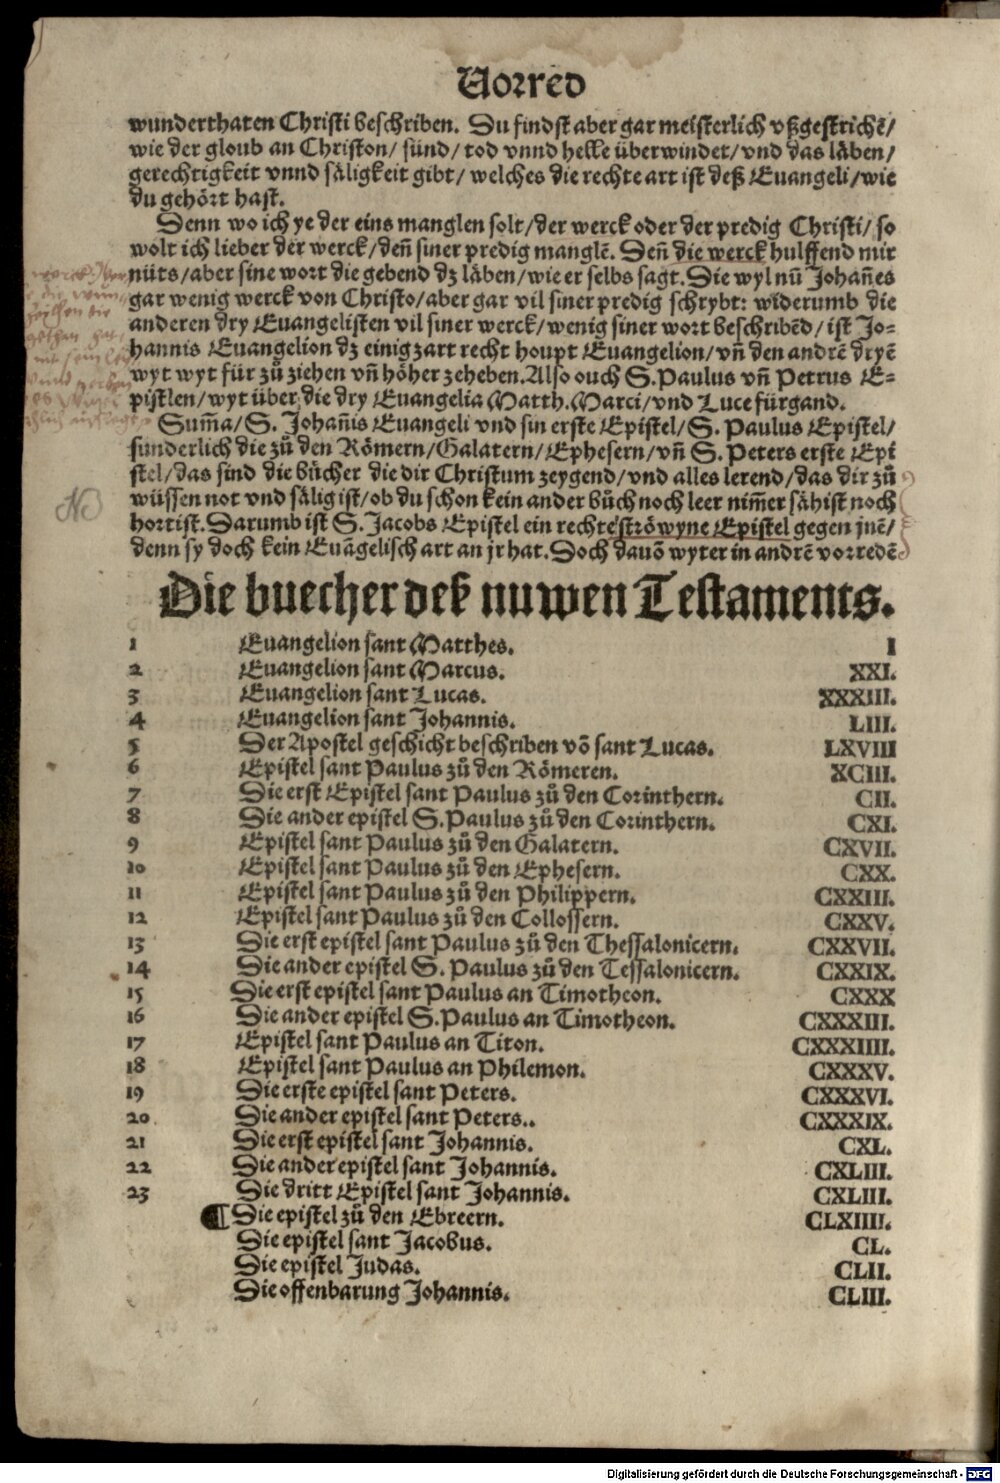 Vorred
wunderthaten Christi beschriben. Du findst aber gar meisterlich vßgestrichē/
wie der gloub an Christon/ sünd/ tod vnnd helle überwindet/ vnd das läben/
gerechtigkeit vnnd säligkeit gibt/ welches die rechte art ist deß Euangeli/ wie
du gehört hast.
Denn wo ich ye der eins manglen solt/ der werck oder der predig Christi/ so
wolt ich lieber der werck/ deñ siner predig manglē. Deñ die werck hulffend mir
nüts/ aber sine wort die gebend dz läben/ wie er selbs sagt. Die wyl nū Johañes
gar wenig werck von Christo/ aber gar vil siner predig schrybt: widerumb die
anderen dry Euangelisten vil siner werck/ wenig siner wort beschribēd/ ist Jo=
hannis Euangelion dz einig zart recht houpt Euangelion/ vñ den andrē dryē
wyt wyt für zů ziehen vñ höher zeheben. Also ouch S. Paulus vñ Petrus E=
pistlen/ wyt über die dry Euangelia Matth. Marci/ vnd Luce fürgand.
Sum̄a/ S. Johañis Euangeli vnd sin erste Epistel/ S. Paulus Epistel/
sunderlich die zů den Römern/ Galatern/ Ephesern/ vñ S. Peters erste Epi
stel/ das sind die bůcher die dir Christum zeygend/ vnd alles lerend/ das dir zů
wüssen not vnd sälig ist/ ob du schon kein ander bůch noch leer nim̄er sähist noch
hortist. Darumb ist S. Jacobs Epistel ein rechte ströwyne Epistel gegen jnē/
denn sy doch kein Euāgelisch art an jr hat. Doch dauō wyter in andrē vorredē
Die buecher deß nuwen Testaments.
1 Euangelion sant Matthes. I
2 Euangelion sant Marcus. XXI.
3 Euangelion sant Lucas. XXXIII.
4 Euangelion sant Johannis. LIII.
5 Der Apostel geschicht beschriben vō sant Lucas. LXVIII
6 Epistel sant Paulus zů den Römeren. XCIII.
7 Die erst Epistel sant Paulus zů den Corinthern. CII.
8 Die ander epistel S. Paulus zů den Corinthern. CXI.
9 Epistel sant Paulus zů den Galatern. CXVII.
10 Epistel sant Paulus zů den Ephesern. CXX.
11 Epistel sant Paulus zů den Philippern. CXXIII.
12 Epistel sant Paulus zů den Collossern. CXXV.
13 Die erst epistel sant Paulus zů den Thessalonicern. CXXVII.
14 Die ander epistel S. Paulus zů den Tessalonicern. CXXIX.
15 Die erst epistel sant Paulus an Timotheon. CXXX
16 Die ander epistel S. Paulus an Timotheon. CXXXIII.
17 Epistel sant Paulus an Titon. CXXXIIII.
18 Epistel sant Paulus an Philemon. CXXXV.
19 Die erste epistel sant Peters. CXXXVI.
20. Die ander epistel sant Peters.. CXXXIX.
21 Die erst epistel sant Johannis. CXL.
22 Die ander epistel sant Johannis. CXLIII.
23 Die dritt Epistel sant Johannis. CXLIII.
¶ Die epistel zů den Ebreern. CLXIIII.
Die epistel sant Jacobus. CL.
Die epistel Judas. CLII.
Die offenbarung Johannis. CLIII.
Digitalisierung gefördert durch die Deutsche Forschungsgemeinschaft - DFG